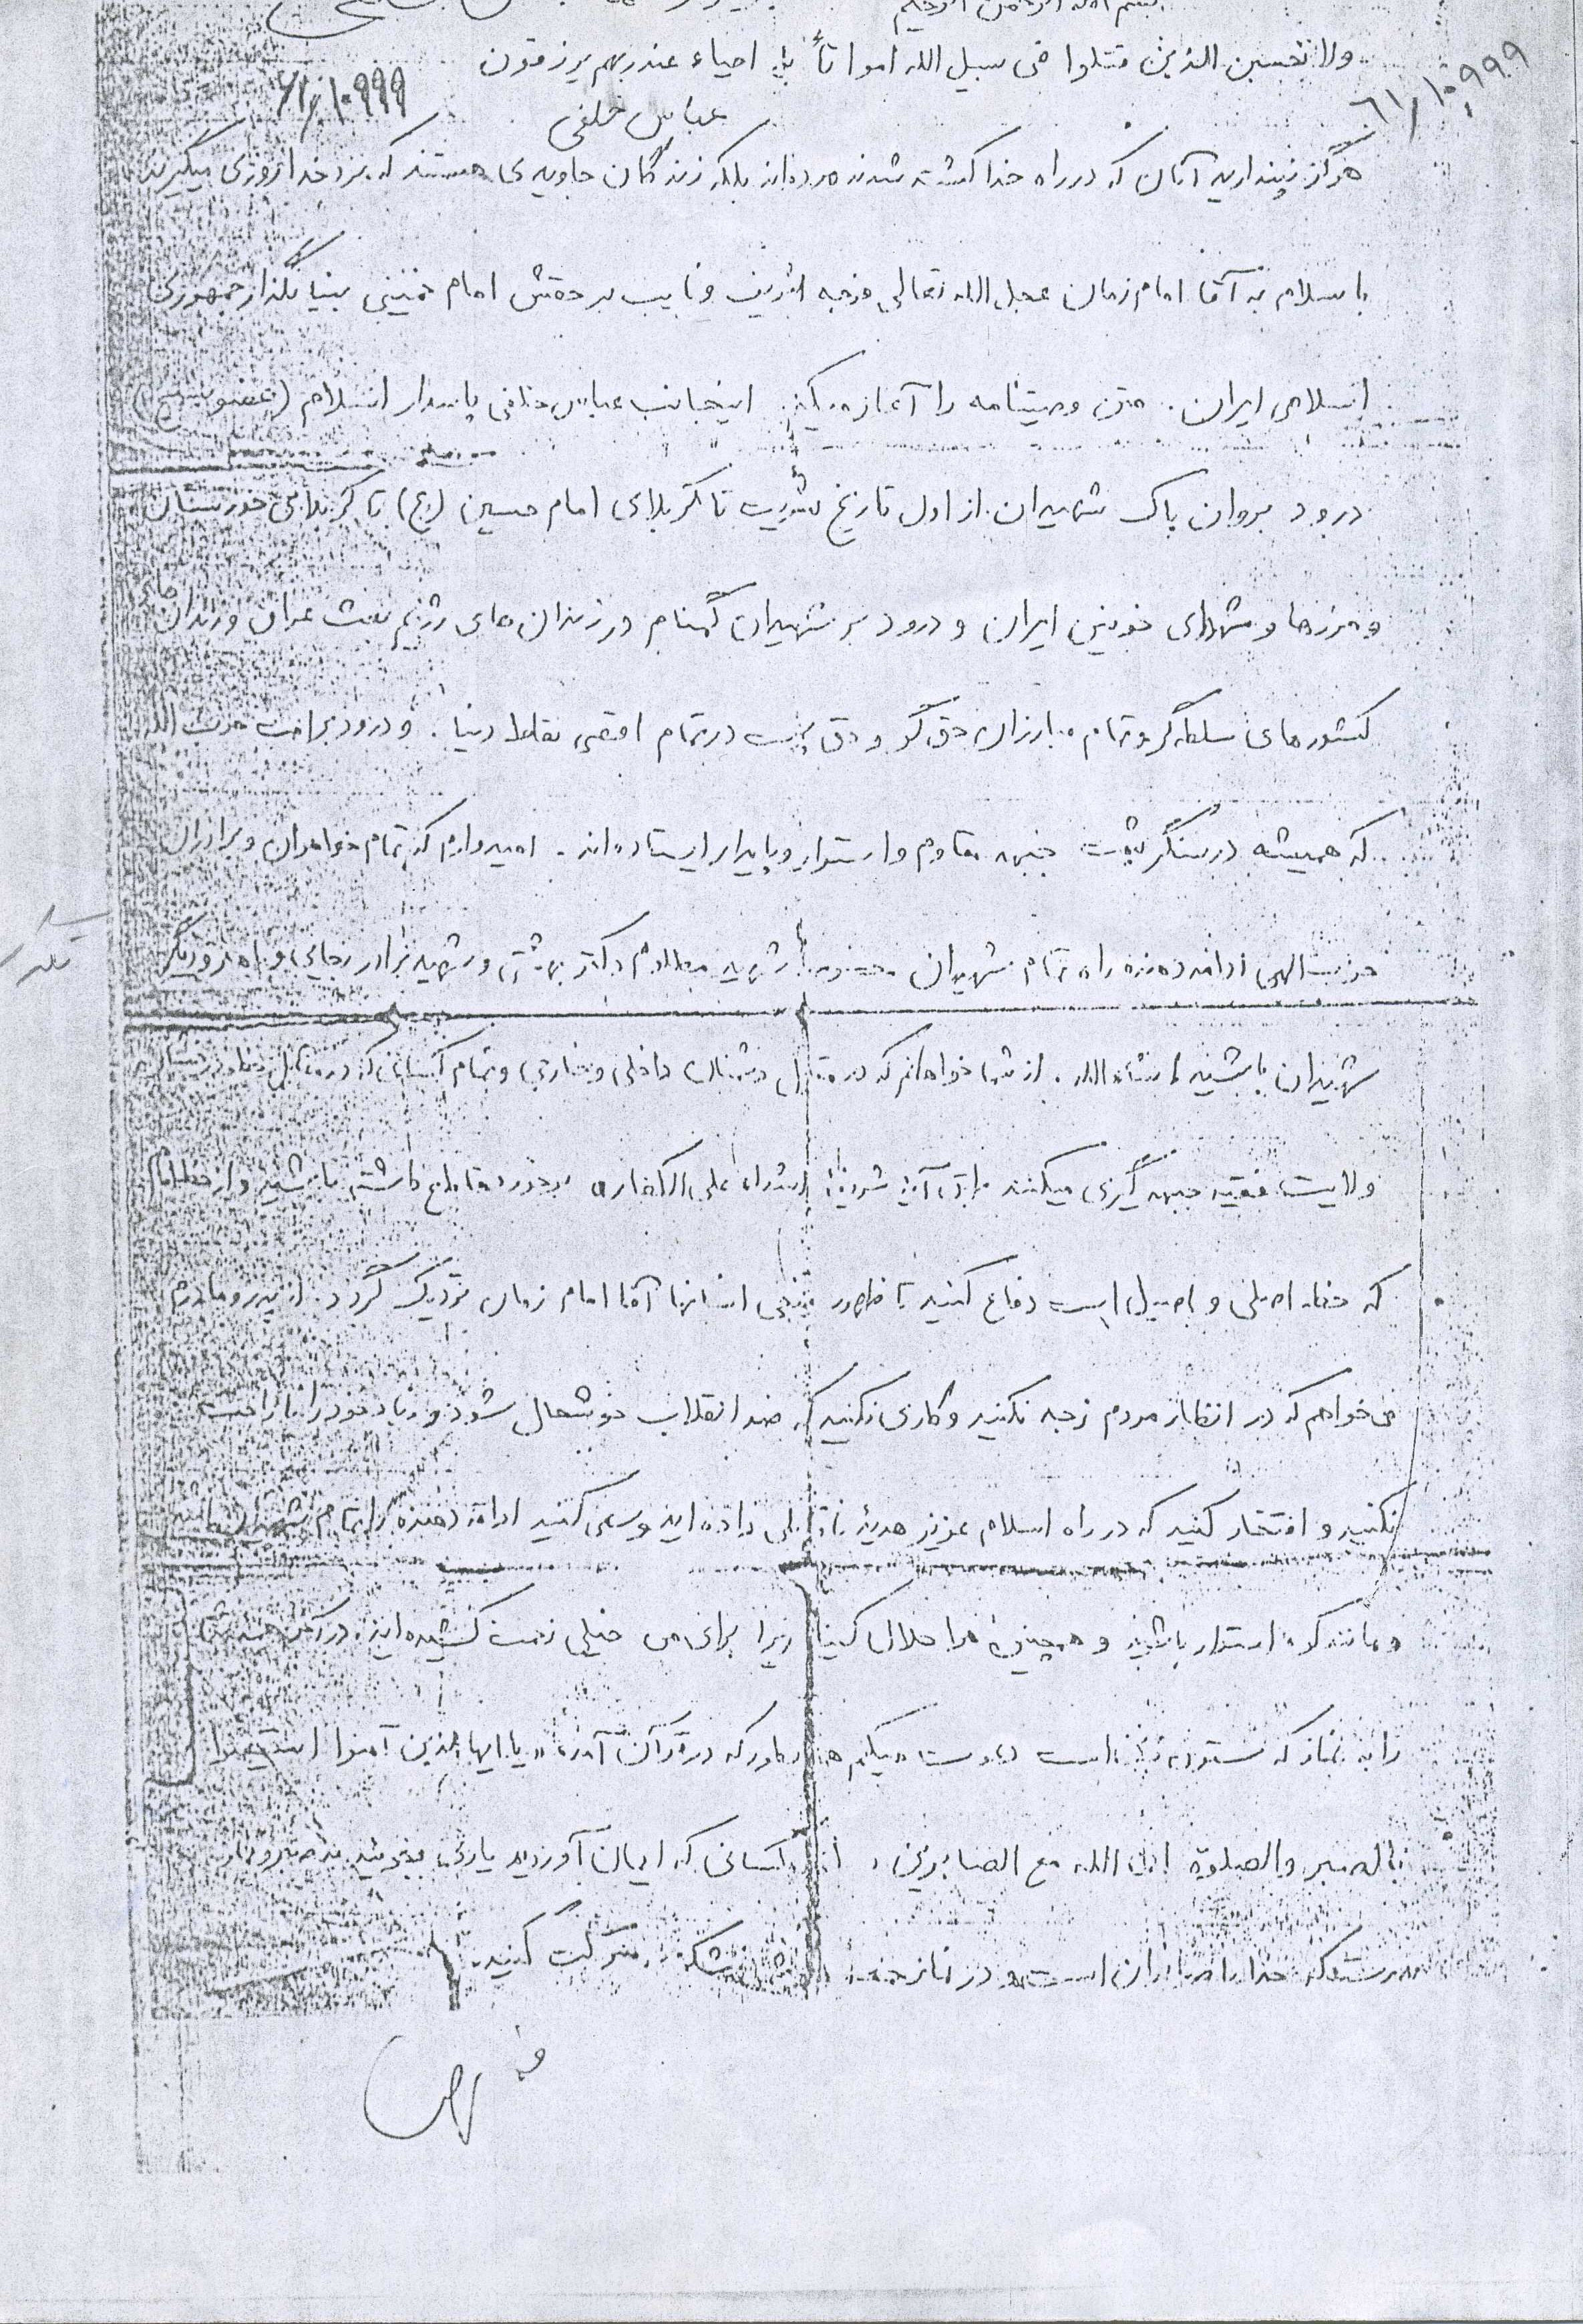 بسم الله الرحمن الرحیم
ولا تحسبن الذین قتلوا فی سبیل الله امواتاً بل احیاء عند ربهم یرزقون
۶۱/۱۰۹۹۹
۶۱/۱۰۹۹۹
عباس خلفی
هرگز نپندارید آنان که در راه خدا کشته شدند مرده‌اند بلکه زندگان جاویدی هستند که نزد خدا روزی میگیرند
با سلام به آقا امام زمان عجل الله تعالی فرجه الشریف و نایب بر حقش امام خمینی بنیانگذار جمهوری
اسلامی ایران. متن وصیتنامه را آغاز میکنم. اینجانب عباس خلفی پاسدار اسلام (عضو بسیج)
درود بروان پاک شهیدان از اول تاریخ بشریت تا کربلای امام حسین (ع) تا کربلای خوزستان
و مرزها و شهرهای خونین ایران و درود بر شهیدان گمنام در زندان های رژیم بعث عراق و زندان های
کشورهای سلطه گر و تمام مبارزان حق گو و حق پرست در تمام اقصی نقاط دنیا. و درود بر امت حزب الله
که همیشه در سنگر پشت جبهه مقاوم و استوار و پایدار ایستاده‌اند. امیدوارم که تمام خواهران و برادران
حزب الهی ادامه دهنده راه تمام شهیدان شهید مظلوم دکتر بهشتی و شهید برادر رجایی و دیگر
شهیدان باشید انشاءالله. از شما خواهانم که در مقابل دشمنان داخلی و خارجی و تمام کسانی که در مقابل
ولایت فقیه جبهه گیری میکنند آیه شریفه اشداء علی الکفار برخورد قاطع داشته باشید و از خط امام
که خط اصلی و اصیل است دفاع کنید تا ظهور منجی انسانها آقا امام زمان نزدیک گردد. از پدر و مادرم
می خواهم که در انظار مردم زجه نکنید و کاری نکنید که ضد انقلاب خوشحال شود و زیاد خود را ناراحت
نکنید و افتخار کنید که در راه اسلام عزیز هدیه ناقابلی داده اید و سعی کنید ادامه دهنده راه تمام شهیدان باشید
و مانند کوه استوار باشید و همچنین مرا حلال کنید زیرا برای من خیلی زحمت کشیده اید.
را به نماز که ستون دین است دعوت میکنم همانطور که در قرآن آمده «یا ایها الذین آمنوا استعینوا
بالصبر والصلوة ان الله مع الصابرین» کسانی که ایمان آوردید یاری بجوئید به صبر و نماز
بدرستیکه خدا با صابران است و در نماز جمعه شرکت کنید.